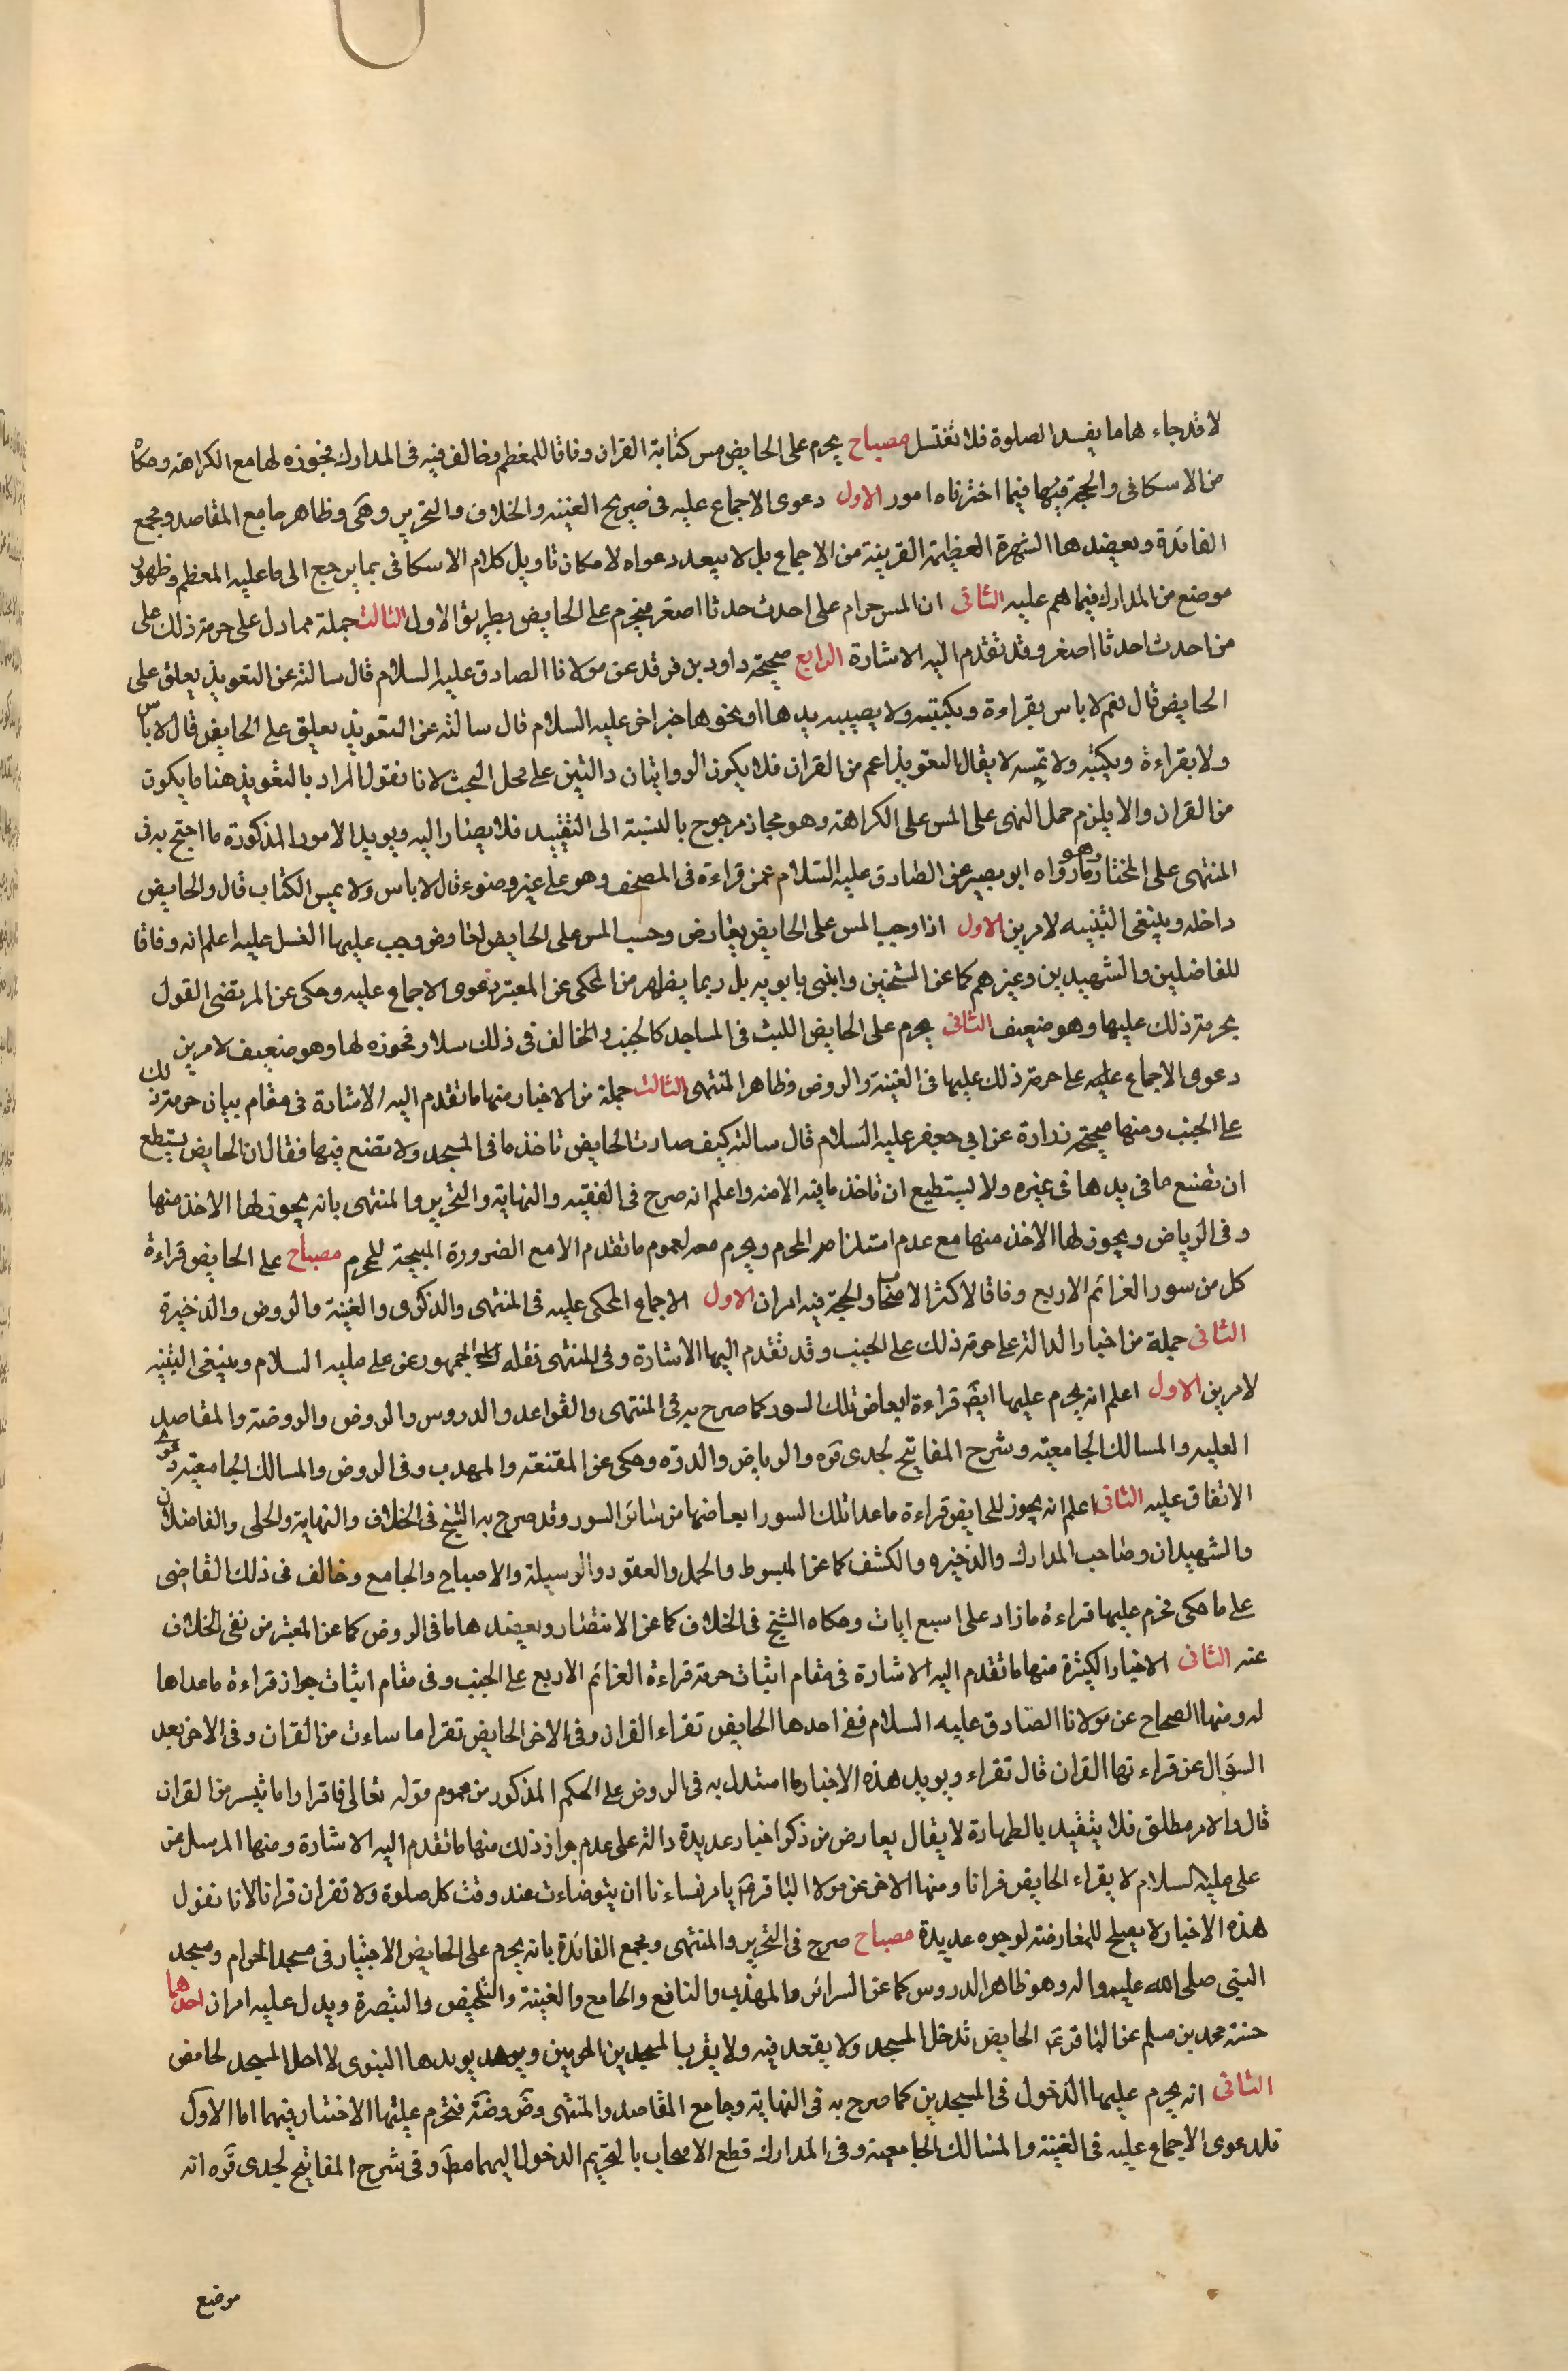 لا قد جاء هاما يفسد الصلوة فلا تغتسل مصباح يحرم على الحايض مس كتابة القران وفاقا للمعظم وخالف فيه فى المدارك فجوزه لها مع الكراهة وحكاه
من الاسكافى والحجة فيها فيما اخترناه امور الاول دعوى الاجماع عليه فى صريح الغنيه والخلاف والتحرير وهى وظاهر جامع المقاصد ومجمع
الفائدة ويعضدها الشهرة العظيمة القريبة من الاجماع بل لا يبعد دعواه لامكان تاويل كلام الاسكافى بما يرجع الى ما عليه المعظم وظهور
موضع من المدارك فيما هم عليه الثانى ان المس حرام على احدث حدثا اصغر فيحرم على الحايض بطريق الاول الثالث جملة مما دل على حرمة ذلك على
من احدث احدثا اصغر وقد تقدم اليه الاشارة الرابع صحيحة داود بن فرقد عن مولانا الصادق عليه السلام قال سالته عن التعويذ يعلق على
الحايض قال نعم لا باس بقراءة ويكتبه ولا يصيبه يدها او نحوها خبر اخر عليه السلام قال سالته عن التعويذ يعلق على الحايض قال لا باس
ولا بقراءة ويكتبه ولا تمسه لا يقال التعويذ اعم من القران فلا يكون الروايتان دالتين على محل البحث لانا نقول المراد بالتعويذ هنا ما يكون
من القران والا يلزم حمل النهى على المس على الكراهة وهو مجاز مرجوح بالنسبة الى التقييد فلا يصار اليه ويويد الامور المذكورة ما احتج به فى
المنتهى على المختار وهو ما رواه ابو بصير عن الصادق عليه السلام عمن قراءة فى المصحف وهو على غير وضوء قال لا باس ولا يمس الكتاب قال والحايض
داخله وينبغى التنبيه لامرين الاول اذا وجب المس على الحايض يعارض وحسب المس على الحايض لعارض وجب عليها الغسل عليه اعلم انه وفاقا
للفاضلين والشهيدين وغيرهم كما عن الشيخين وابنى بابويه بل ربما يظهر من المحكى عن المعتبر دعوى الاجماع عليه وحكى عن المرتضى القول
بحرمة ذلك عليها وهو ضعيف الثانى يحرم على الحايض اللبث فى المساجد كالجنب والمخالف فى ذلك سلار فجوزه لها وهو ضعيف لامرين
دعوى الاجماع عليه على حرمة ذلك عليها فى الغنية والروض وظاهر المنتهى الثالث جملة من الاخبار منها ما تقدم اليه الاشارة فى مقام بيان حرمة ذلك
على الجنب ومنها صحيحة زرارة عن ابى جعفر عليه السلام قال سالته كيف صارت الحايض تاخذ ما فى المسجد ولا تضع فيها فقال ان الحايض يستطع
ان تضع ما فى يدها فى غيره ولا يستطيع ان تاخذ ما فيه الا منه واعلم انه صرح فى الفقيه والنهاية والتحرير والمنتهى بانه يجوز لها الاخذ منها
وفى الرياض ويجوز لها الاخذ منها مع عدم استلزام المحرم ويحرم معه لعموم ما تقدم الا مع الضرورة المبيحة للمحرم مصباح على الحايض قراءة
كل من سور العزائم الاربع وفاقا لاكثر الاصحاب والحجة فيه امران الاول الاجماع المحكى عليه فى المنتهى والذكرى والغنية والروض والذخيرة
الثانى جملة من اخبار الدالة على حرمة ذلك على الجنب وقد تقدم اليها الاشارة وفى المنتهى نقله الجمهور عن على عليه السلام وينبغى التنبيه
لامرين الاول اعلم انه يحرم عليها ايضا قراءة ابعاض تلك السور كما صرح به فى المنتهى والقواعد والدروس والروض والروضة والمقاصد
العليه والمسالك الجامعية وشرح المفاتيح لجدى قره والرياض والدره وحكى عن المقنعة والمهدب وفى الروض والمسالك الجامعيه دعوى
الاتفاق عليه الثانى اعلم انه يجوز للحايض قراءة ما عدا تلك السور ابعاضها من سائر السور وقد صرح به الشيخ فى الخلاف والنهاية والحلى والفاضلان
والشهيدان وصاحب المدارك والذخيره والكشف كما عن المبسوط والجمل والعقود والوسيلة والاصباح والجامع وخالف فى ذلك القاضى
على ما حكى فحرم عليها قراءة ما زاد على سبع ايات وحكاه الشيخ فى الخلاف كما عن الانتصار ويعضدها ما فى الروض كما عن المعتبر من نفى الخلاف
عنه الثانى الاخبار الكثيرة منها ما تقدم اليه الاشارة فى مقام اثبات حرمة قراءة العزائم الاربع على الجنب وفى مقام اثبات جواز قراءة ما عداها
له ومنها الصحاح عن مولانا الصادق عليه السلام ففى احدها الحايض تقراء القران وفى الاخر الحايض تقرا ما ساءت من القران وفى الاخر بعد
السؤال عن قراءتها القران قال تقراء ويويد هذه الاخبار ما استدل به فى الروض على الحكم المذكور من عموم قوله تعالى فاقراوا ما تيسر من القران
قال والامر مطلق فلا يتقيد بالطهارة لا يقال يعارض من ذكر اخبار عديدة دالة على عدم جواز ذلك منها ما تقدم اليه الاشارة ومنها المرسل عن
على عليه السلام لا يقراء الحايض قرانا ومنها الاخر عن مولانا الباقر يامر نساءنا ان يتوضاءت عند وقت كل صلوة ولا تقران قرانا لانا نقول
هذه الاخبار لا يصلح للمعارضة لوجوه عديدة مصباح صرح فى التحرير والمنتهى ومجمع الفائدة بانه يحرم على الحايض الاجتياز فى مسجد الحرام ومسجد
النبى صلى الله عليه واله وهو ظاهر الدروس كما عن السرائر والمهذب والنافع والجامع والغنية والتلخيص والتبصرة ويدل عليه امران احدهما
حسنة محمد بن مسلم عن الباقر ع الحايض تدخل المسجد ولا يقعد فيه ولا يقرب المسجدين الحرمين ويويدها النبوى لا احل المسجد لحايض
الثانى انه يحرم عليها الدخول فى المسجدين كما صرح به فى النهاية وجامع المقاصد والمنتهى وض وضة فتحرم عليها الاختيار فيهما اما الاول
فلدعوى الاجماع عليه فى الغنية والمسالك الجامعية وفى المدارك قطع الاصحاب بالتحريم الدخول اليهما مط وفى شرح المفاتيح لجدى قره انه
موضع